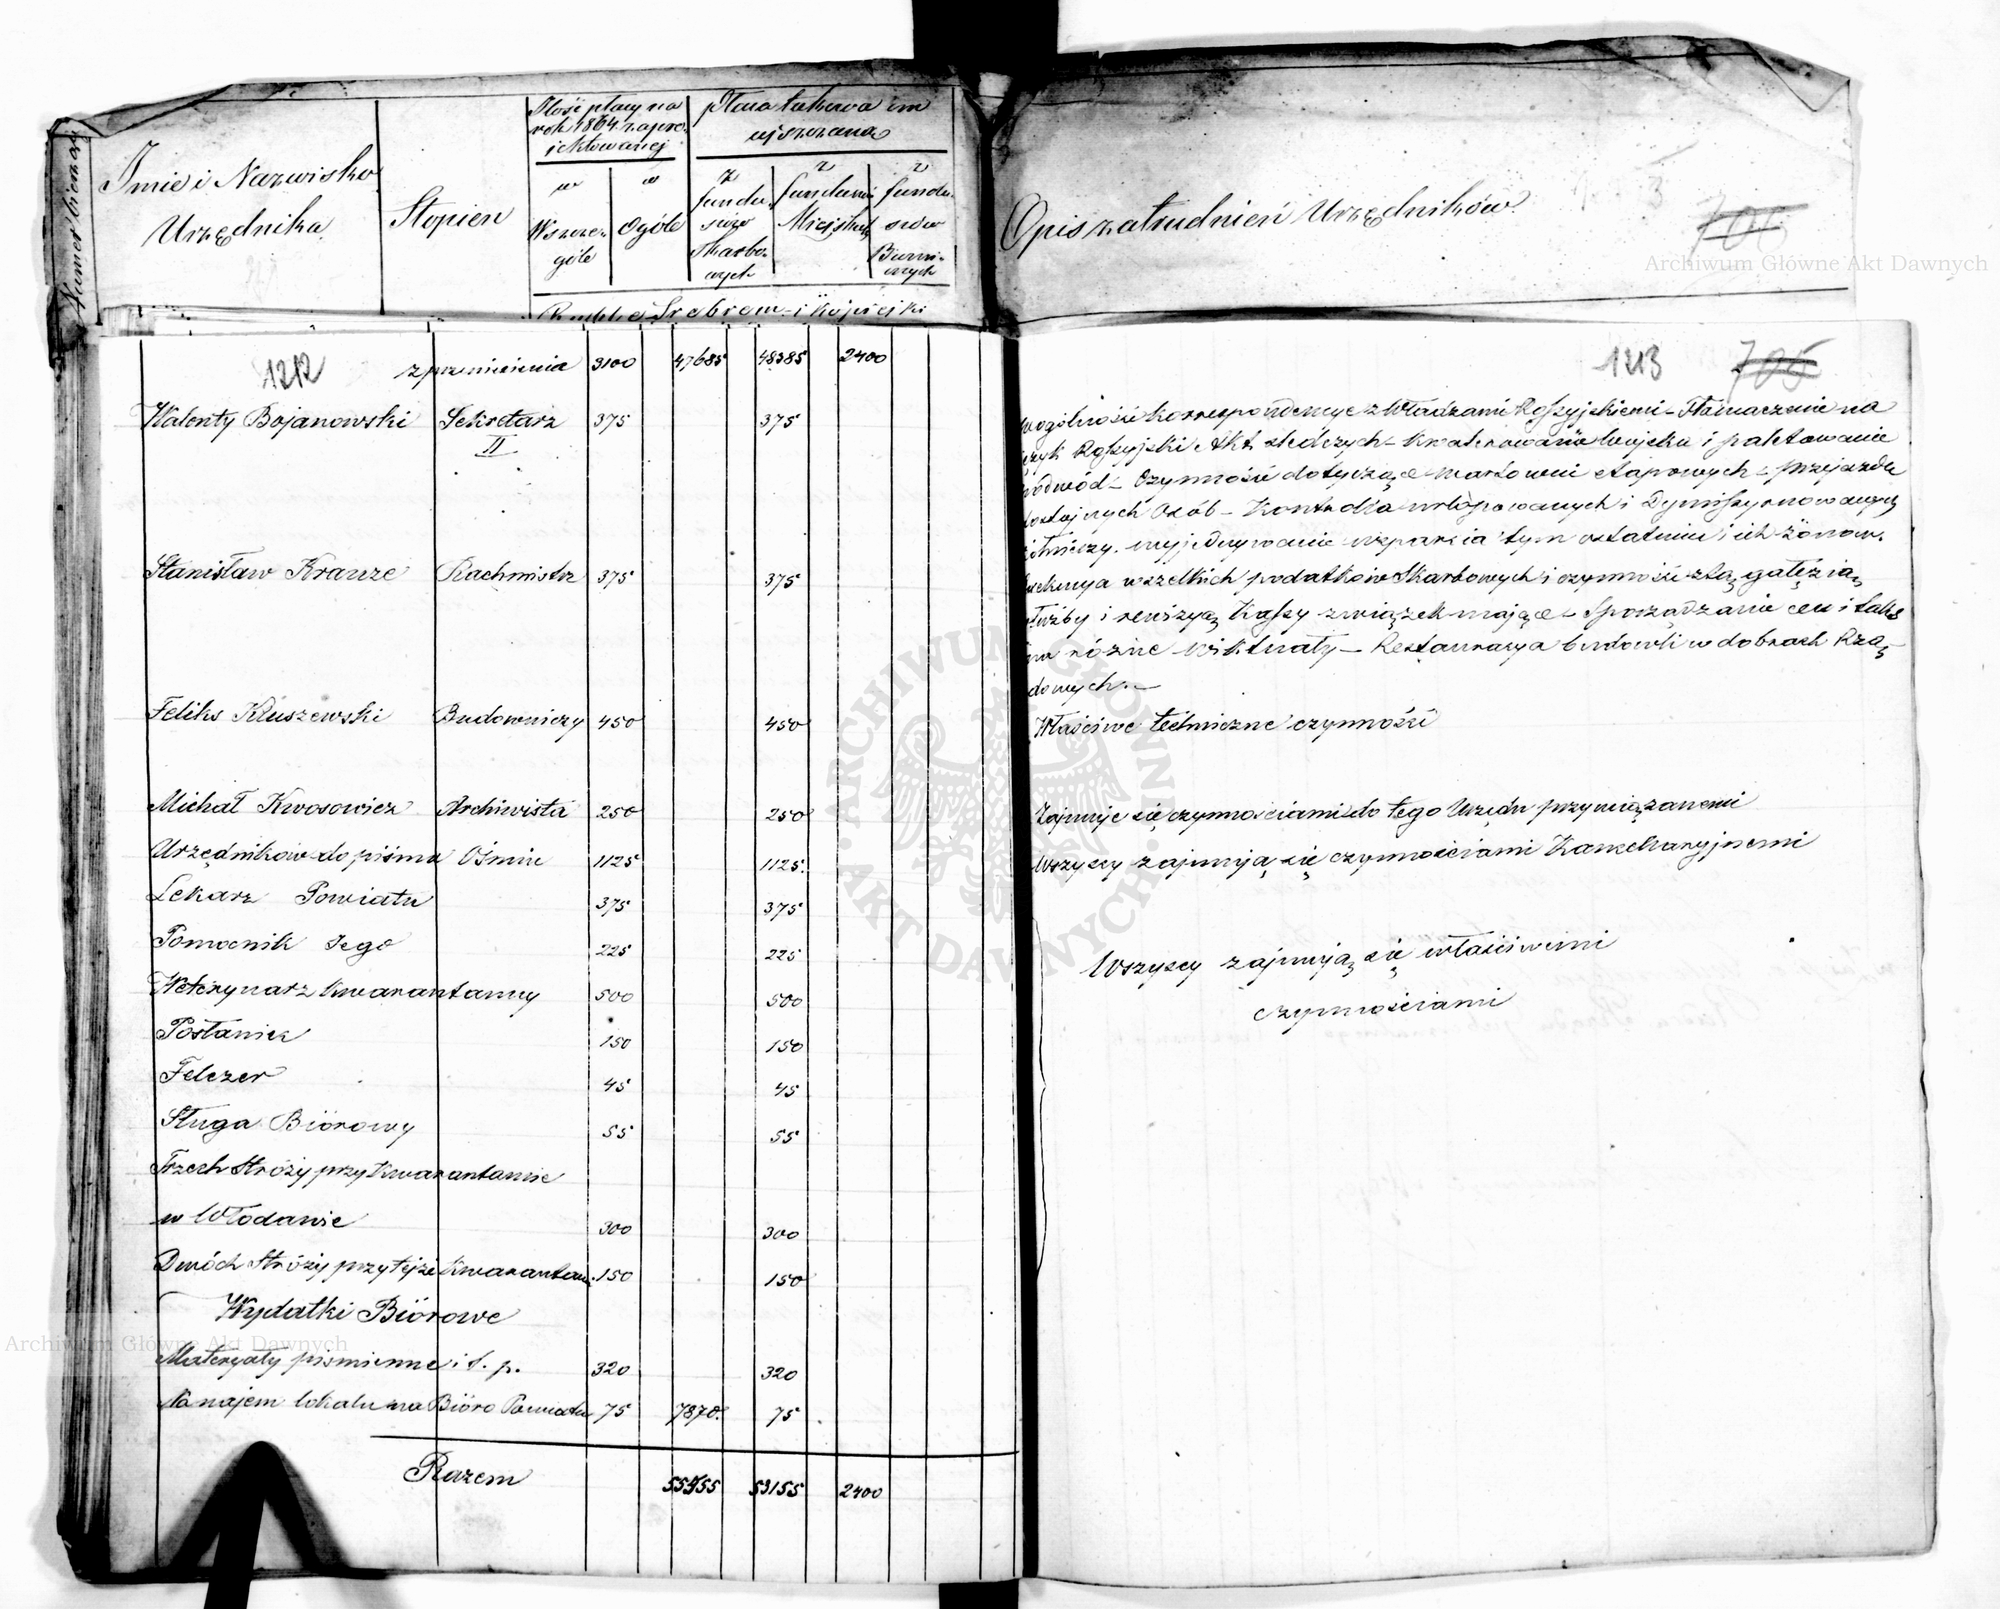 Numer bieżący
Imie i Nazwisko
Urzędnika
Stopien
Ilość płacy na
rok 1864 zapro-
jektowanej
w
Wszcze-
góle
w
Ogóle
płaca takowa im
ujszczana
z
fundu-
szów
Skarbo-
wych
z
funduszów
Miejskich
z
fundu-
szów
Rubli Srebrem i Kopiejki
Opis zatrudnień Urzędników
700
1212
z przeniesienia 3100 47685 48385 2400
Walenty Bojanowski Sekretarz 375 375
II
Stanisław Krauze Rachmistrz 375 375
Feliks Kluszewski Budowniczy 450 450
Michał Kwosowicz Archiwista 250 250
Urzędników do pisma Ośmiu 1125 1125.
Lekarz Powiatu 375 375
Pomocnik Jego 225 225
Weterynarz Kwarantanny 500 500
Posłaniec 150 150
Felczer 45 45
Sługa Biórowy 55 55
Trzech Stróży przy Kwarantanie
w Włodawie 300 300
Dwóch Stróży przy tejże Kwarantan. 150 150
Wydatki Biórowe
Materyały piśmienne i t. p. 320 320
Na najem lokalu na Bióro Powiatu 75 7870. 75
Razem 55555 53155 2400
1213 705
w ogólności korrespondencye z Władzami Rossyjskiemi - Tłómaczenie na
język Rossyjski Akt śledczych - Kwaterowanie wojska i
podwód - Czynności dotyczące marszowni etapowych - przejazdu
dostojnych Osób - Kontrolla urlopowanych i Dymissyonowanych
żołnierzy. wyjednywanie wsparcia tym ostatnim i ich żonom.
wszelkich podatków Skarbowych i czynności z tą gałęzią
służby i rewizyą Kassy związek mające - Sporządzanie cen i taks
na różne wiktuały - Restauracya budowli w dobrach Rzą-
dowych.
Właściwe techniczne czynności
Zajmuje się czynnościami do tego Urzędu przywiązanemi
Wszyscy zajmują się czynnościami Kancellaryjnemi
Wszyscy zajmują się właściwemi
czynnościami
ARCHIWUM GŁÓWNE AKT DAWNYCH
Archiwum Główne Akt Dawnych
Archiwum Główne Akt Dawnych